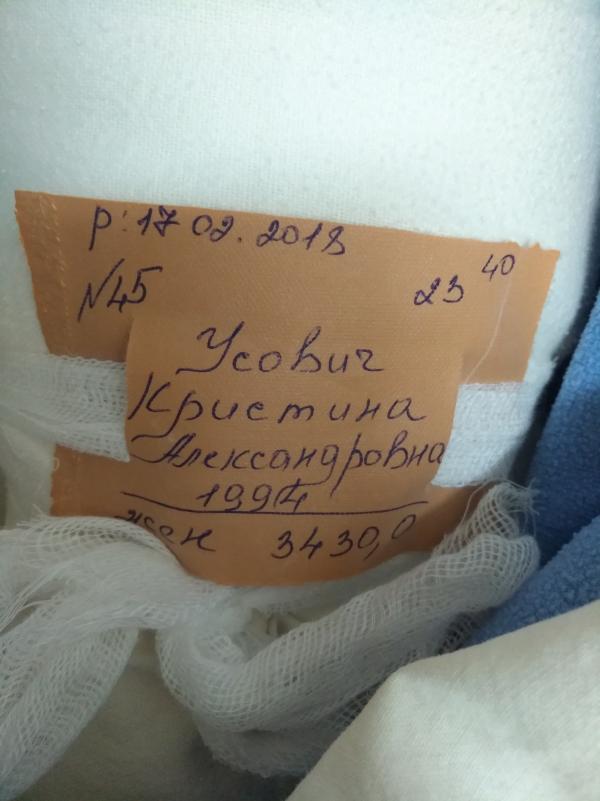 р: 17 02. 2018
№45 23 40
Усович
Кристина
Александровна
1994
жен 3430,0